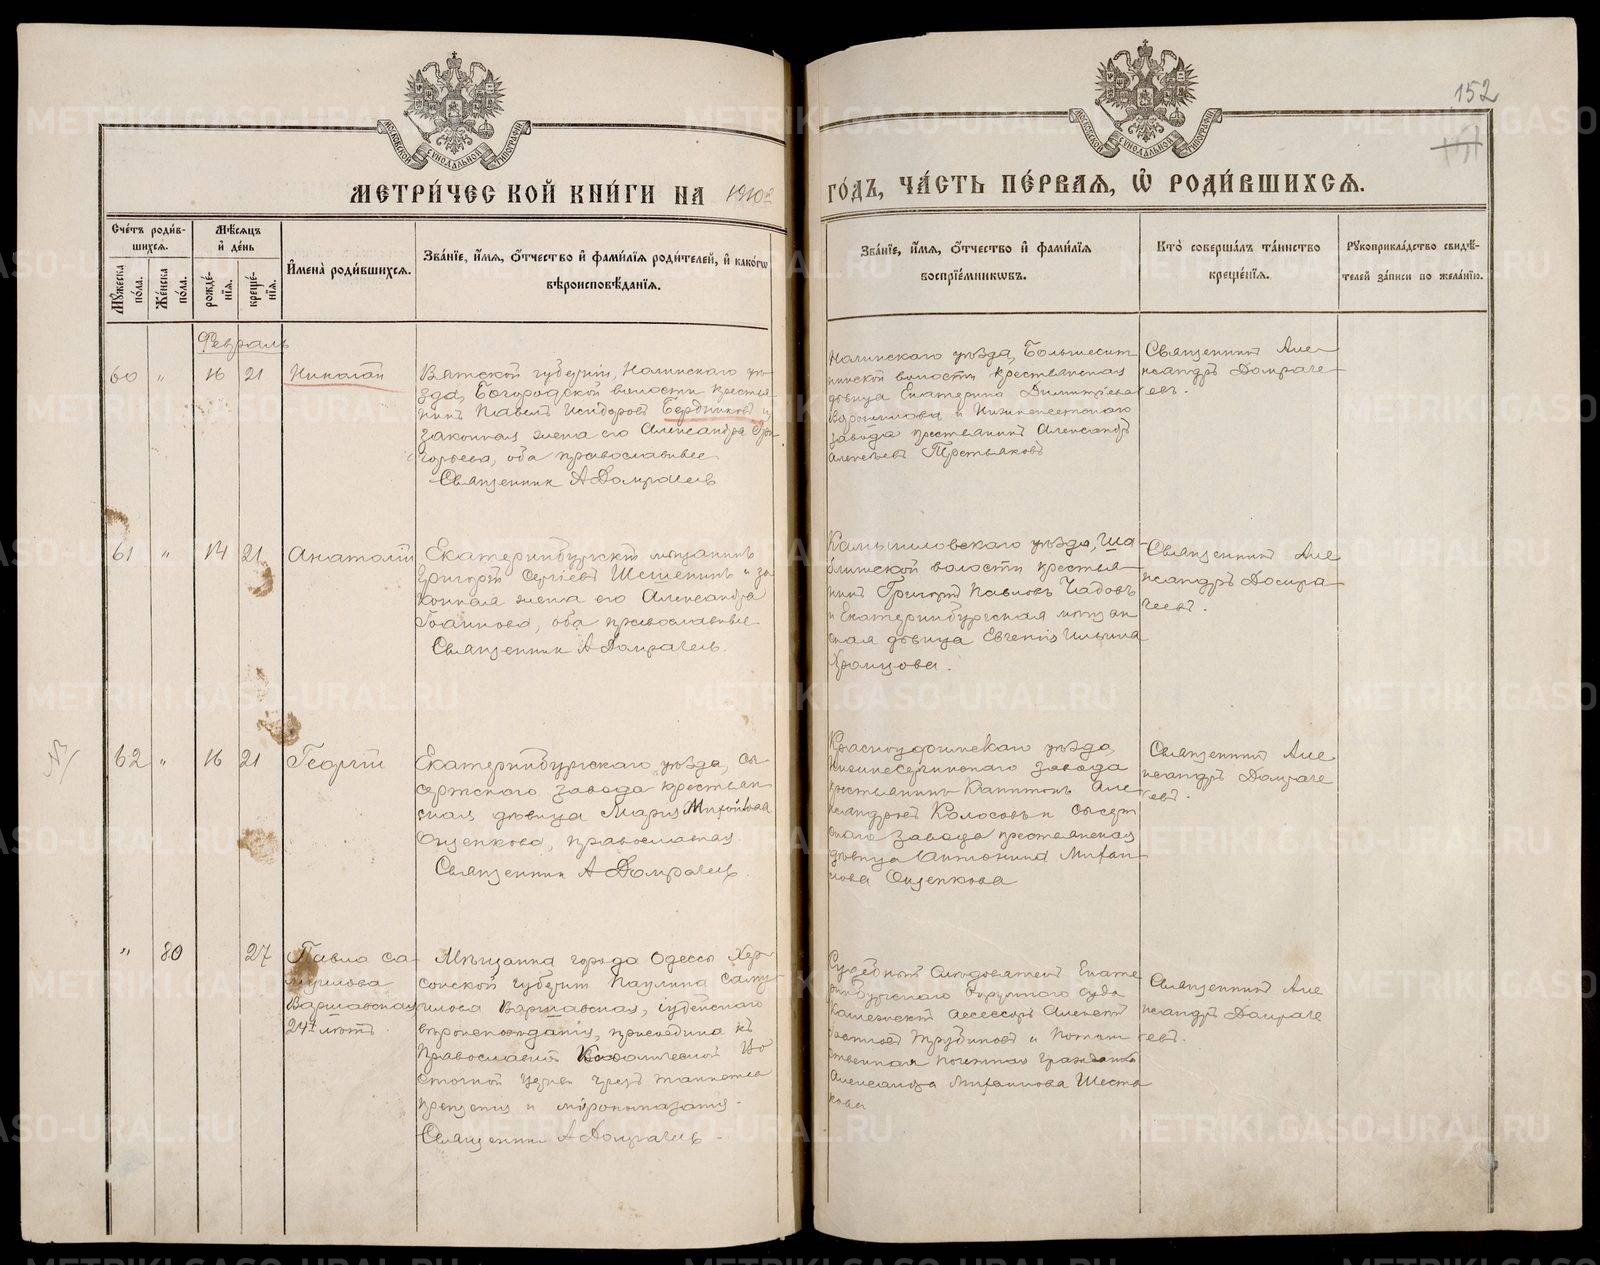 152
МОСКОВСКОЙ СѴНОДАЛЬНОЙ ТИПОГРАФІИ
МОСКОВСКОЙ СѴНОДАЛЬНОЙ ТИПОГРАФІИ
МЕТРИ́ЧЕСКОЙ КНИ́ГИ НА 1910 г
ГО́ДЪ, ЧА́СТЬ ПЕ́РВАЯ, Ѽ РОДИ́ВШИХСЯ.
Сче́тъ роди́в-
шихся.
Му́жеска по́ла.
Же́нска по́ла.
Мѣ́сяцъ
и҆ де́нь
рожде́-
нїя.
креще́-
нїя.
И҆мена̀ роди́вшихся.
Зва́нїе, и҆́мя, ѻ҆́тчество и҆ фами́лїя роди́телей, и҆ како́гѡ
вѣроисповѣ́данїя.
Зва́нїе, и҆́мя, ѻ҆́тчество и҆ фами́лїя
воспрїе́мникѡвъ.
Кто̀ соверша́лъ та́инство
креще́нїя.
Рукоприкла́дство свидѣ́-
телей за́писи по жела́нїю.
Февраль
60 " 16 21 Николай
Вятской губерніи, Нолинскаго уѣ-
зда, Богородской волости крестья-
нинъ Павелъ Исидоровъ Бердниковъ и
законная жена его Александра Гри-
горьева, оба православные
Священник А Домрачевъ
Нолинскаго уѣзда,
волости крестьянская
дѣвица Екатерина Димитріева
и Нижнесетскаго
завода крестьянинъ Александръ
Алексѣевъ Третьяковъ
Священникъ Але-
ксандръ Домраче-
евъ.
61 " 14 21 Анатолій
Екатеринбургскій мѣщанинъ
Григорій Сергіевъ Шешенинъ и за-
конная жена его Александра
Іоаннова, оба православные
Священник А Домрачевъ.
Камышловскаго уѣзда,
волости крестья-
нинъ Григорій Павловъ Чадовъ
и Екатеринбургская мѣщан-
ская дѣвица Евгенія Ильина
Храмцова.
Священникъ Але
ксандръ Домра-
чевъ.
62 " 16 21 Георгій
Екатеринбургскаго уѣзда, Сы-
сертскаго завода крестьян-
ская дѣвица Марія Михайлова
Ощепкова, православная
Священник А Домрачевъ.
Красноуфимскаго уѣзда
Нижнесергинскаго завода
крестьянинъ Капитонъ Але-
ксандровъ Колосовъ и Сысерт
скаго завода крестьянская
дѣвица Антонина Михаи-
лова Ощепкова
Священникъ Але
ксандръ Домраче
евъ.
" 80 27 Павла Са-
муилова
Варшавская
24 лѣтъ
Мѣщанка города Одессы Хер-
сонской губерніи Паулина Саму-
илова Варшавская, іудейскаго
вѣроисповѣданія, присоединена къ
Православной Каѳолической Во-
сточной Церкви чрезъ таинства
крещенія и мѵропомазанія.
Священник А Домрачевъ.
Судебный Слѣдователь Екате-
ринбургскаго Окружнаго Суда
Коллежскій Ассессоръ Алексѣй
Трубиновъ и Потом-
ственная Почетная Гражданка
Александра Михаилова Шеста-
кова
Священникъ Але
ксандръ Домраче
евъ.
METRIKI.GASO-URAL.RU